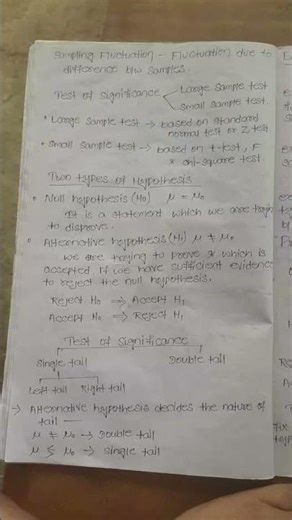 Sampling Fluctuation - Fluctuation due to
difference b/w samples.
Test of Significance
Large Sample test
Small Sample test
• Large Sample test → based on Standard
normal test or Z test
• Small Sample test → based on t-test, F
& chi-square test
Two types of Hypothesis
• Null hypothesis (H0) μ = μ0
It is a statement which we are trying
to disprove.
• Alternative hypothesis (H1) μ ≠ μ0
We are trying to prove & which is
accepted if we have sufficient evidence
to reject the null hypothesis.
Reject H0 ⟹ Accept H1
Accept H0 ⟹ Reject H1
Test of Significance
Single tail Double tail
Left tail Right tail
→ Alternative hypothesis decides the nature of
tail —
μ ≠ μ0 → Double tail
μ ≶ μ0 → Single tail